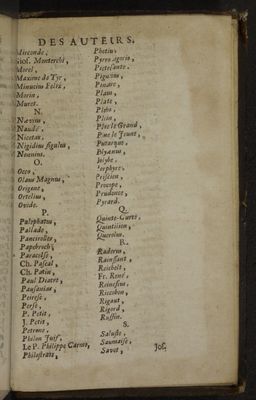 DES AUTEURS.
Mirconde,
Giof. Monterchi,
Morel,
Maxime de Tyr,
Minutius Felix,
Morin,
Muret.
N.
Nævius,
Naudé,
Nicetas,
Nigidius figulus,
Nonnius.
O.
Occo,
Olaus Magnus,
Origene,
Ortelius,
Ovide.
P.
Palephatus,
Pallade,
Pancirolle,
Papebroch,
Paracelse,
Ch. Paschal,
Ch. Patin,
Paul Diacre,
Pausanias,
Peiresc,
Perse,
P. Petit,
J. Petit,
Petrone,
Philon Juif,
Le P. Philippe Carme,
Philostrate,
Photius,
Pierre
Pignorius,
Pindare,
Platon,
Pline le Grand,
Pline le Jeune,
Plutarque,
Polybe,
Porphyre,
Priscien,
Procope,
Prudence,
Pyrard.
Q.
Quinte-Curse,
Quintilien,
Querolus.
R.
Raderus,
Rainssant,
Reichelt,
Fr. René,
Reinesius,
Riccobon,
Rigaut,
Rigord,
Ruffin.
S.
Saluste,
Saumaise,
Savot,
Jos.